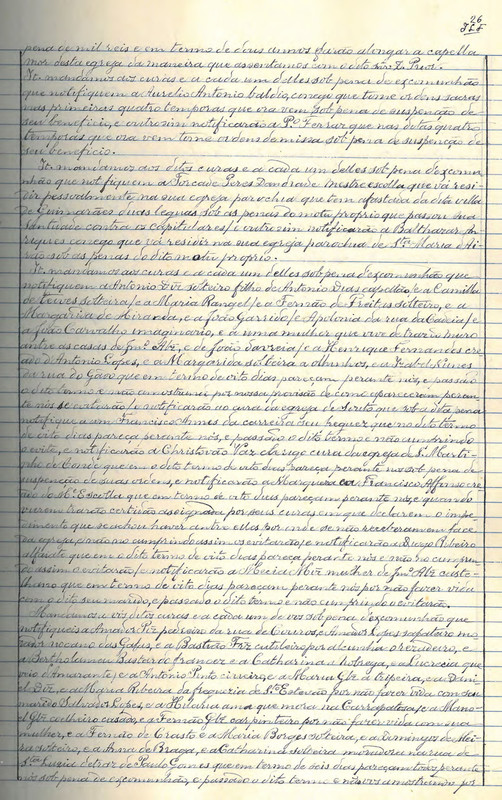 26
pena de mil reis e em termo de dous annos farão alongar a capella
mor desta egreja da maneira que assentamos com o dito Snr. D. Prior.
It. mandamos aos curas e a cada um delles sob pena de excomunhão
que notifiquem a Aurelio Antonio conego que tome ordens sacras
nas primeiras quatro temporas que ora vem sob pena de suspenção de
seu beneficio, e outro sim notificarão a P.º Ferraz que nas ditas quatro
temporas que ora vem tome ordens de missa sob pena de suspenção de
seu beneficio.
It. mandamos aos ditos curas e a cada um delles sob pena d'excomu-
nhão que notifiquem a Peres Dandrade mestre escolla que vá resi-
dir pessoalmente na sua egreja parochia que tem afastada da dita villa
de Guimarães duas legoas sob as penas do motu proprio que passou Sua
Santidade contra os capitulares, e outro sim notificarão a Balthazar An-
riques conego que vá residir na sua egreja parochia de Sta. Maria d'Ai-
rão sob as penas do dito motu proprio.
It. mandamos aos curas e a cada um delles sob pena d'excomunhão que
notifiquem a Antonio Diz solteiro filho de Antonio Dias capellão, e a Camilla
de Neves solteira, e a Maria Rangel, e a Fernão de Freitas solteiro, e a
Margarida de Miranda, e a João Garrido, e Apolonia da rua da Cadeia, e
a João Carvalho imaginario, e a uma mulher que vive detraz do muro
entre as casas de Alz. e de João e a Henrique Fernandes cre-
ado d'Antonio Lopes, e a Margarida solteira e a Izabel Nunes
da rua do Gado que em termo de oito dias pareçam perante nós, e passado
o dito termo e não amostrando por nossa provisão de como apareceram peran-
te nós se evitarão, e notificarão ao cura da egreja de que sob a dita pena
notifique a um Francisco Annes da carreira seu freguez que no dito termo
de oito dias pareça perante nós, e passado o dito termo e não cumprindo
o evite, e notificarão a Christovão Vaz clerigo cura da egreja de S. Marti-
nho de Conde que em o dito termo de oito dias pareça perante nós sob pena de
suspenção de suas ordens, e notificarão a Francisco Affonso cre-
ado do Me. Escolla que em termo de oito dias pareçam perante nós, e quando
vierem trarão certidão assignada por seus curas em que declarem o impe-
dimento que se achou haver entre elles por onde se não receberam em face
da egreja, e não no cumprindo assim os evitarão, e notificarão a Diogo Ribeiro
alfaiate que em o dito termo de oito dias pareça perante nós e não no cumprin-
do assim o evitarão, e notificarão a Mecia Miz. mulher de Alz.
que em termo de oito dias pareçam perante nós por não fazer vida
com o dito seu marido, e passado o dito termo e não cumprindo o evitarão.
Mandamos a vós ditos curas e a cada um de vos sob pena d'excomunhão que
notifiqueis a Amador Piz. padeiro da rua de Couros, sapateiro mo-
rador no cano das Gafas, e a Bastião Friz. cutileiro por alcunha o rezadeiro, e
a Bertholameu Bustardo francez e a Catharina e Lucrecia que
veio d'Amarante, e a Antonio Pinto cirieiro, e a Maria Glz. a tripeira, e a Dani-
el Diz., e a Maria Ribeira da freguezia de Sto. Estevão por não fazer vida com seu
marido Salvador Lopes, e a Hilaria ama que mora na Carrapatosa, e a Mano-
el Glz. alheiro casado, e a Fernão Glz. carpinteiro por não fazer vida com sua
mulher, e a Fernão de Crasto e a Maria Borges solteira, e a Domingos de Mei-
ra solteiro, e a Anna de Braga, e a Catharina solteira moradora na rua de
Sta. Luzia detraz de Paulo Gomes que em termo de seis dias pareçam perante
nós sob pena de excomunhão, e passado o dito termo e não vos amostrando por